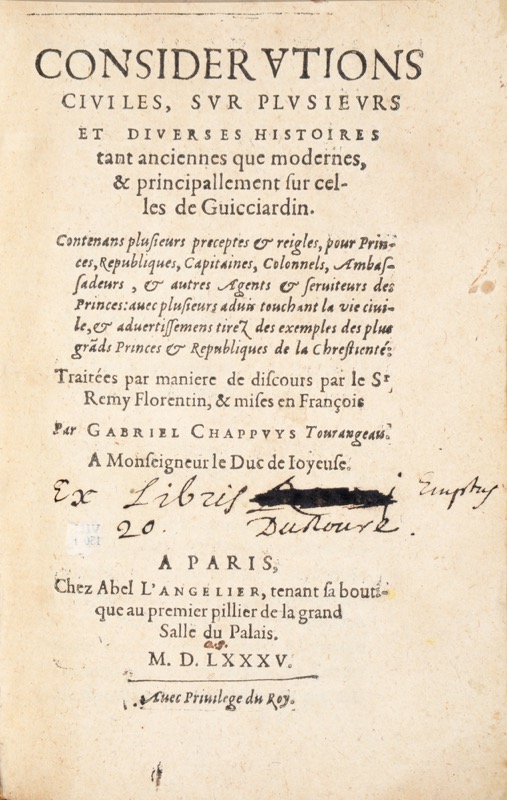 CONSIDERVTIONS
CIVILES, SVR PLVSIEVRS
ET DIVERSES HISTOIRES
tant anciennes que modernes,
& principallement ſur cel-
les de Guicciardin.
Contenans pluſieurs preceptes & reigles, pour Prin-
ces, Republiques, Capitaines, Colonnels, Ambaſ-
ſadeurs, & autres Agents & ſeruiteurs des
Princes: auec pluſieurs aduis touchant la vie ciui-
le, & aduertiſſemens tirez des exemples des plus
grãds Princes & Republiques de la Chreſtienté:
Traitées par maniere de diſcours par le Sr
Remy Florentin, & miſes en François
Par GABRIEL CHAPPVYS Tourangeau.
A Monſeigneur le Duc de Ioyeuſe.
Ex Libris Emptus
20. DuRoure.
A PARIS,
Chez Abel L'ANGELIER, tenant ſa bouti-
que au premier pillier de la grand
Salle du Palais.
M. D. LXXXV.
Auec Priuilege du Roy.